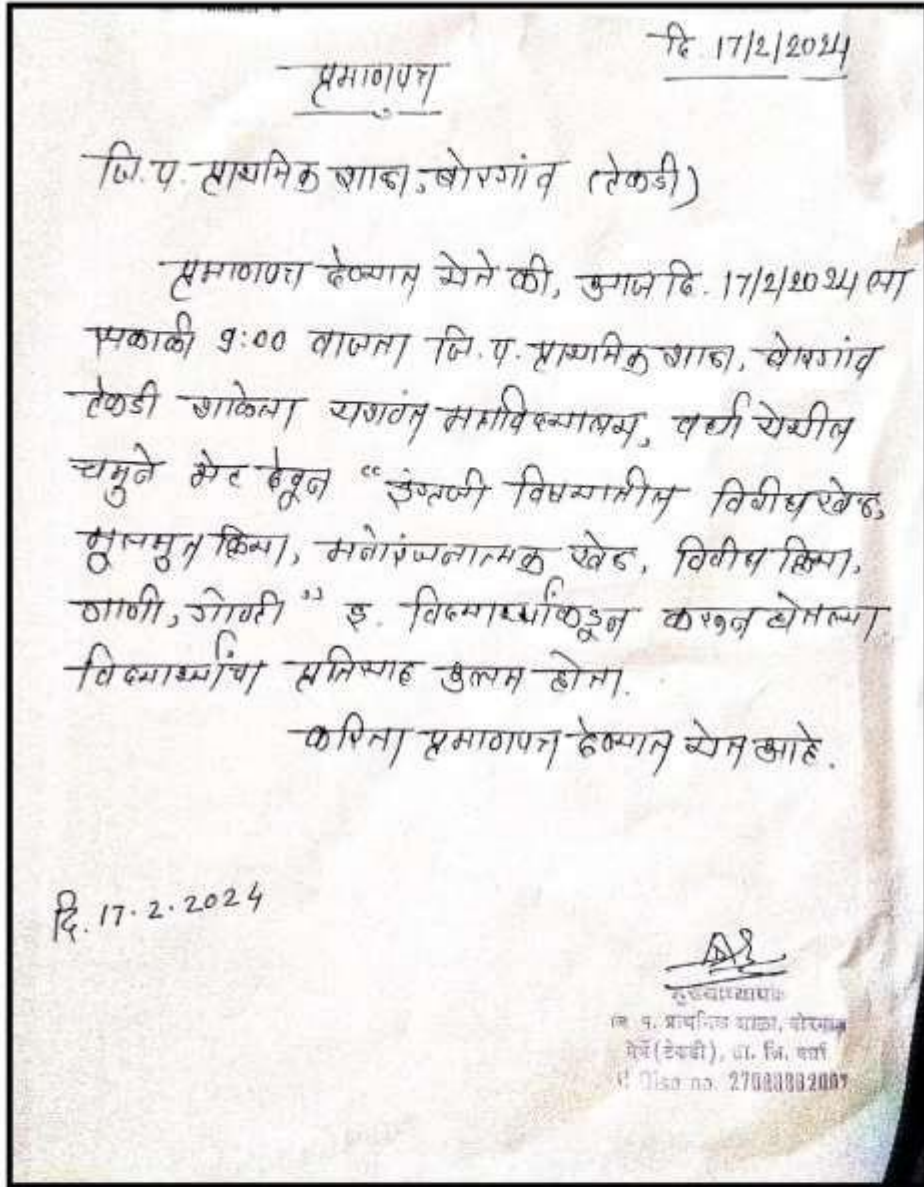 दि. 17/2/2024
प्रमाणपत्र
जि. प. प्राथमिक शाळा, बोरगांव (टेकडी)
प्रमाणपत्र देण्यात येते की, आज दि. 17/2/2024 ला
सकाळी 9:00 वाजता जि. प. प्राथमिक शाळा, बोरगांव
टेकडी शाळेला यशवंत महाविद्यालय, वर्धा येथील
चमुने भेट देवून " इंग्रजी विषयातील विवीध खेळ,
मुलभुत क्रिया, मनोरंजनात्मक खेळ, विवीध क्रिया,
गाणी, गोष्टी " इ. विद्यार्थ्यांकडून करून घेतल्या
विद्यार्थ्यांचा प्रतिसाद उत्तम होता.
करिता प्रमाणपत्र देण्यात येत आहे.
दि. 17.2.2024
मुख्याध्यापक
प. प्राथमिक शाळा, बोरगाव
मेघे (टेकडी), ता. जि. वर्धा
Dise no.